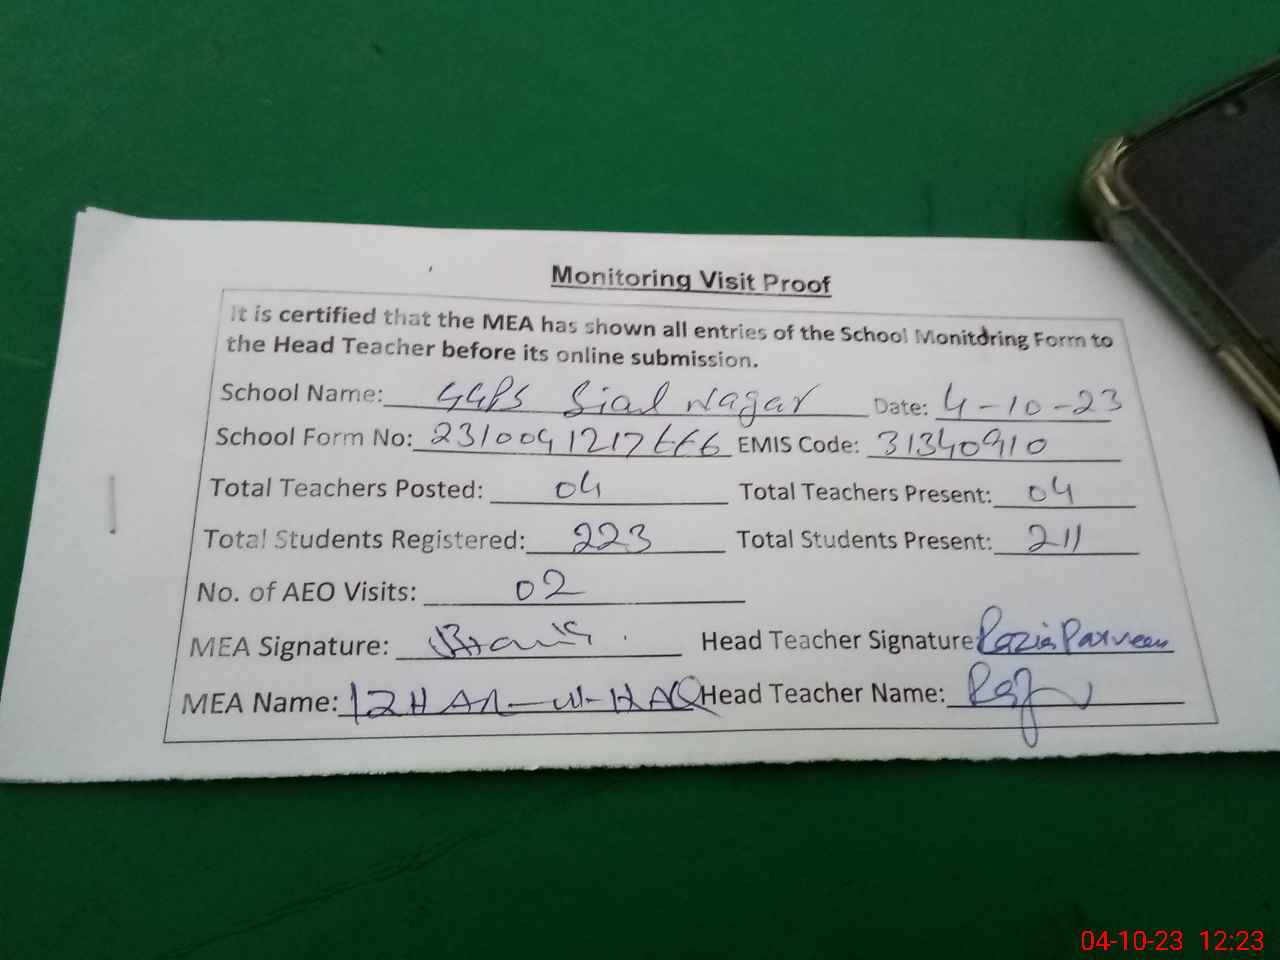 Monitoring Visit Proof
It is certified that the MEA has shown all entries of the School Monitoring Form to
the Head Teacher before its online submission.
School Name: GGPS Sial Nagar Date: 4-10-23
School Form No: 2310041217666 EMIS Code: 31340910
Total Teachers Posted: 04 Total Teachers Present: 04
Total Students Registered: 223 Total Students Present: 211
No. of AEO Visits: 02
MEA Signature: Head Teacher Signature: Razia Parveen
MEA Name: IZHAR-ul-HAQ Head Teacher Name:
04-10-23 12:23